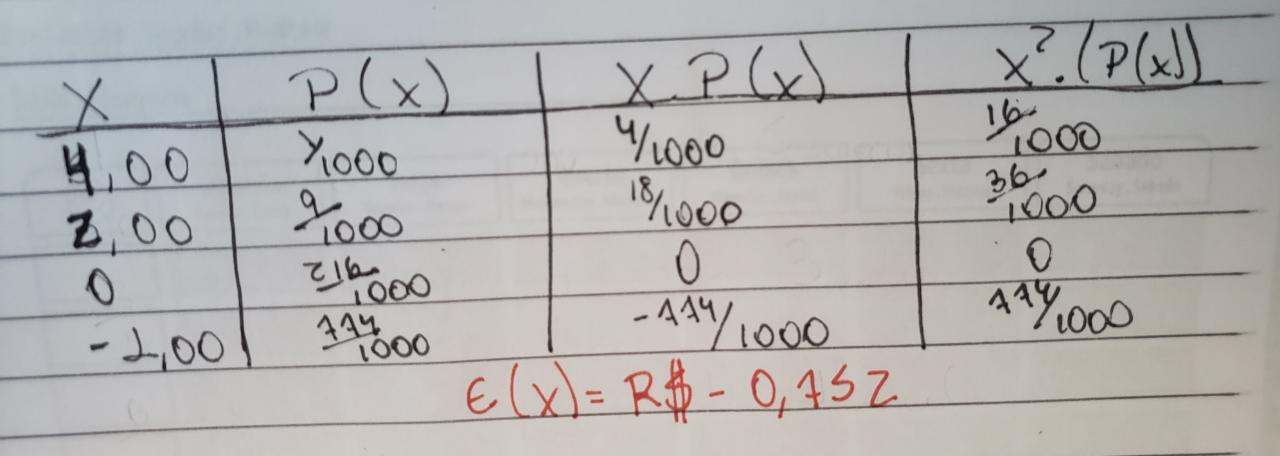 X P(x) X.P(x) X².(P(x))
4,00 1/1000 4/1000 16/1000
2,00 9/1000 18/1000 36/1000
0 216/1000 0 0
-1,00 774/1000 -774/1000 774/1000
E(x)= R$ - 0,752